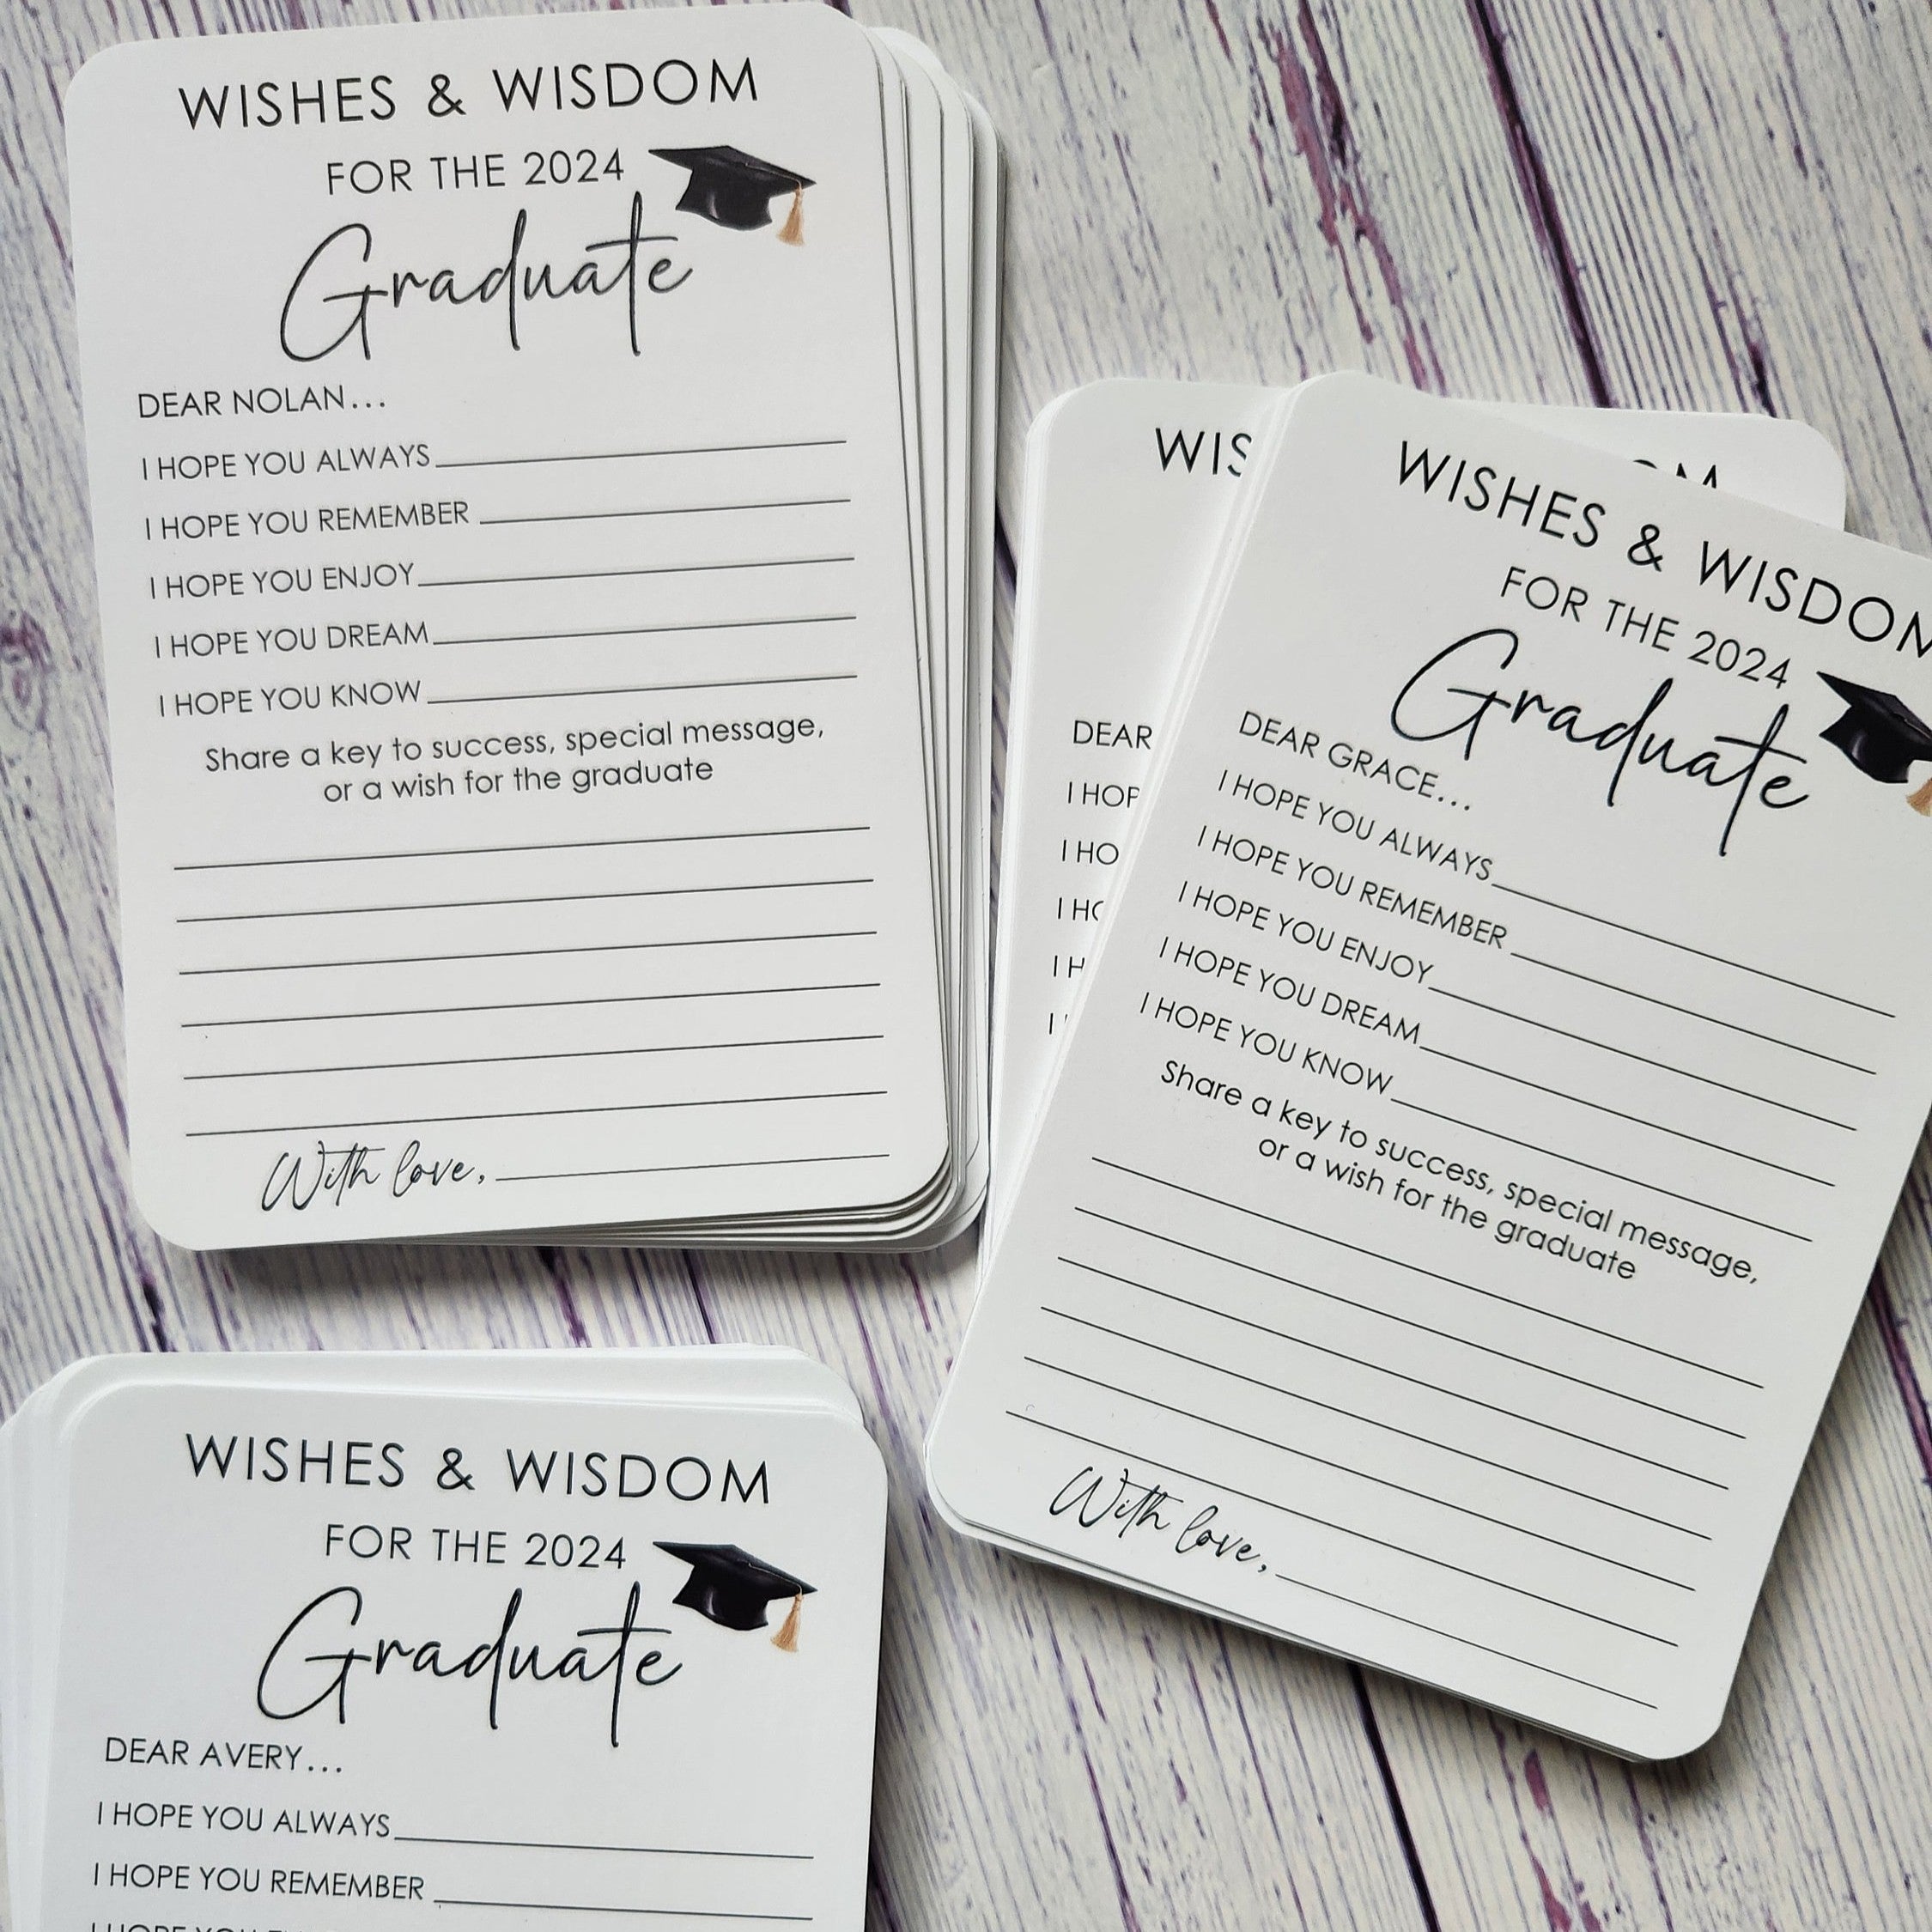 WISHES & WISDOM
FOR THE 2024
Graduate
DEAR NOLAN...
I HOPE YOU ALWAYS
I HOPE YOU REMEMBER
I HOPE YOU ENJOY
I HOPE YOU DREAM
I HOPE YOU KNOW
Share a key to success, special message,
or a wish for the graduate
With love,
WISHES & WISDOM
FOR THE 2024
Graduate
DEAR GRACE...
I HOPE YOU ALWAYS
I HOPE YOU REMEMBER
I HOPE YOU ENJOY
I HOPE YOU DREAM
I HOPE YOU KNOW
Share a key to success, special message,
or a wish for the graduate
With love,
DEAR
WISHES & WISDOM
FOR THE 2024
Graduate
DEAR AVERY...
I HOPE YOU ALWAYS
I HOPE YOU REMEMBER